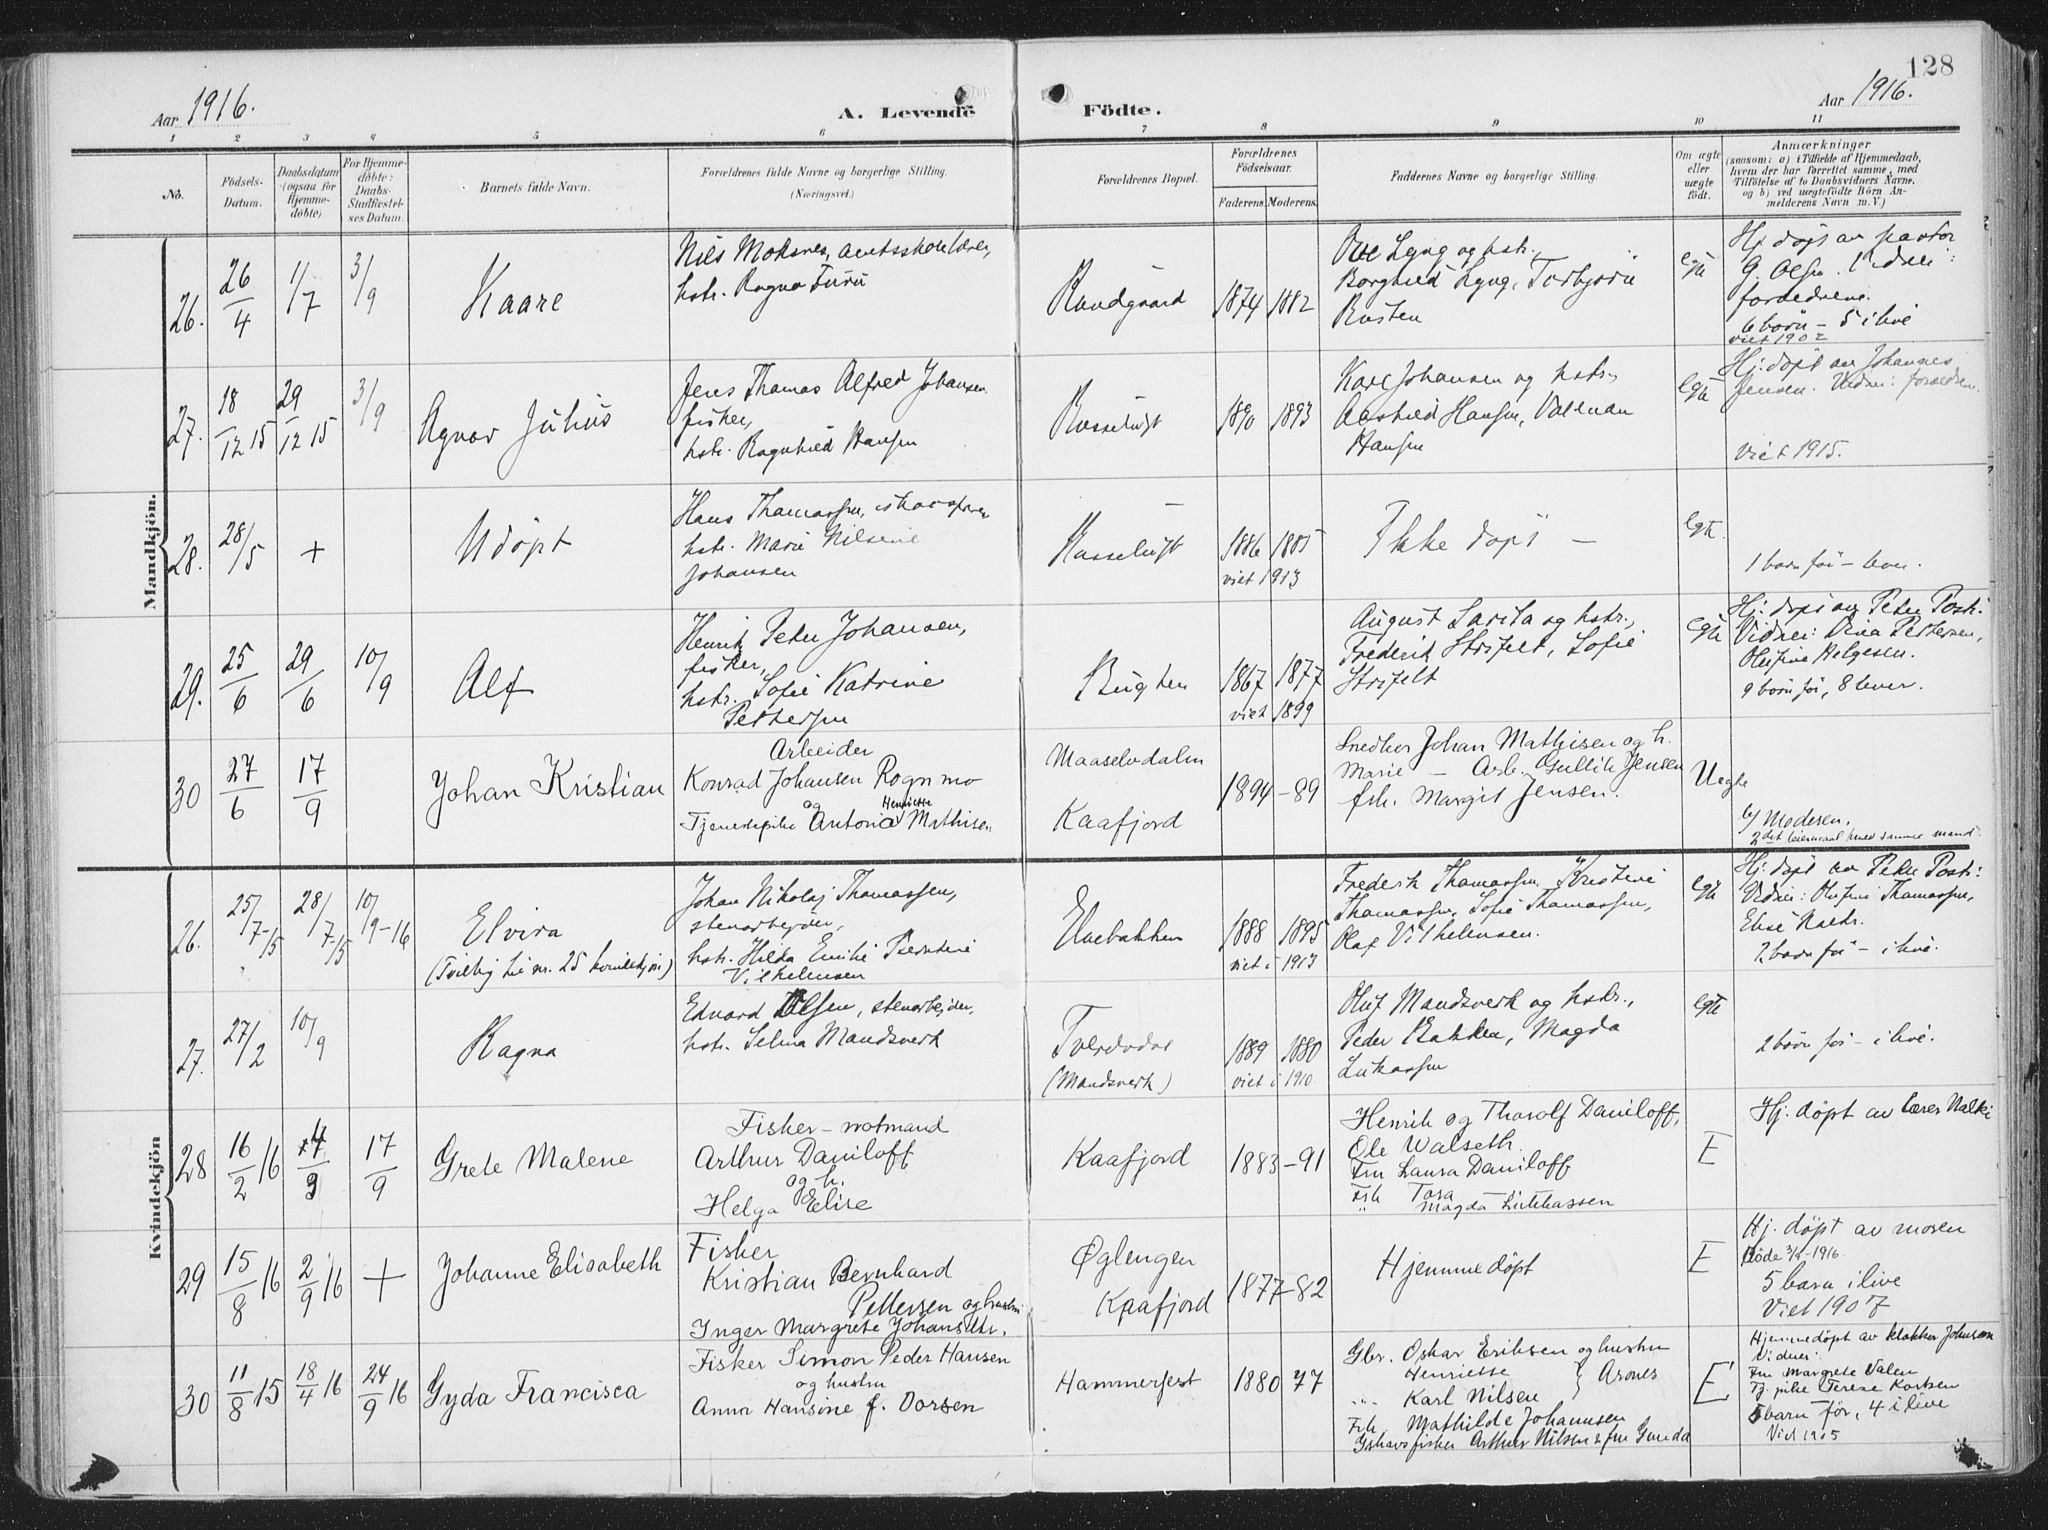 128
Aar 1916.
A. Levende Födte.
Aar 1916.
1 2 3 4 5 6 7 8 9 10 11
No.
Födsels-Datum.
Daabsdatum (ogsaa for Hjemme-döbte).
For Hjemme-döbte: Daabs-Stadfæstel-ses Datum.
Barnets fulde Navn.
Forældrenes fulde Navne og borgerlige Stilling.
(Næringsvei.)
Forældrenes Bopæl.
Forældrenes Födselsaar.
Faderens. Moderens.
Faddernes Navne og borgerlige Stilling.
Om ægte eller uægte födt.
Anmærkninger
(saasom: a) i Tilfælde af Hjemmedaab,
hvem der har forrettet samme, med
Tilföielse af to Daabsvidners Navne,
og b) ved uægtefödte Börn An-
melderens Navn m. V.)
Mandkjön.
26. 26/4 1/7 3/9
Kaare
Nils Moksnes, amtsskolelærer,
hstr. Ragna Furu
Rundgaard
1874 1882
Ove Lyng og hstr.,
Borghild Lyng, Torbjørn
Rusten
egte
Hj. døpt av pastor
G. Olsen. Vidner:
forældrene.
6 børn - 5 i live
viet 1902
27. 18/12 15 29/12 15 3/9
Agnar Julius
Jens Thomas Alfred Johansen
fisker,
hstr. Ragnhild Hansen
Russeluft
1890 1893
Karl Johansen og hstr.,
Aashild Hansen, Valdman
Hansen
egte
Hj: døpt av Johannes
Jensen. Vidner: foræld
viet 1915.
28. 28/5 +
Udøpt
Hans Thomassen,
hstr. Marie Nilsine
Johansen
Russeluft
1886 1885
viet 1913
Ikke døpt -
egte.
1 barn før - lever.
29. 25/6 29/6 10/9
Alf
Henrik Peter Johansen,
fisker,
hstr. Sofie Katrine
Pettersen
Bugten
1867 1877
viet 1899
August Sarila og hstr.,
Frederik Strifelt, Sofie
Strifelt
egte
Hj: døpt av Peter Post:
Vidner: Dina Pettersen,
Olufine Helgesen.
9 børn før, 8 lever.
30 27/6 17/9
Johan Kristian
Arbeider
Konrad Johansen Rognmo
og
Tjenestepike Antonie Henriette Mathisen
Maaselvdalen
Kaafjord
1894 - 89
Snedker Johan Mathisen og h.
Marie - Arb. Gullik Jensen
frk. Margit Jensen.
Uegte
v/ Moderen.
2det leiermaal med samme mand.
Kvindekjön
26. 25/7-15 28/7-15 10/9-16
Elvira
(Tvilling til nr. 25 kvindekjøn)
Johan Nikolaj Thomassen,
stenarbejder,
hstr. Hilda Emilie Berntine
Vilhelmsen
Elvebakken
1888 1895
viet i 1913
Frederik Thomassen, Kristine
Thomassen, Sofie Thomassen,
Olaf Vilhelmsen.
egte
Hj: døpt av Peter Post:
Vidner: Olufine Thomassen,
Elise
2 børn før - i live.
27. 27/2 10/9
Ragna
Edvard Olsen, stenarbejder,
hstr. Selma Mandsverk
Tverdvdal
(Mandsverk)
1889 1880
viet i 1910.
Oluf Mandsverk og hstr.,
Peder Bakken, Magda
Lukassen
egte
2 børn før - i live.
28 16/2 16 4/3 17/9
Grete Malene
Fisker - notmand
Arthur Daniloff
og h.
Helga Elise
Kaafjord
1883 - 91
Henrik og Tharolf Daniloff,
Ole Walseth.
Fru Laura Daniloff
Frk Tora
" Magda Lukkassen
E
Hj. døpt av lærer
29 15/8 16 2/9 16 +
Johanne Elisabeth
Fisker
Kristian Bernhard
Pettersen og hustru
Inger Margrete Johansdtr.
Øglengen
Kaafjord
1877 - 82
Hjemmedøpt
E
Hj. døpt av moren
Døde 3/9-1916.
5 barn i live
Viet 1907
30 11/8 15 18/4 16 24/9 16
Gyda Francisca
Fisker Simon Peder Hansen
og hustru
Anna Hansine f. Dorsen
Hammerfest
1880 77
Gbr. Oskar Eriksen og hustru
Henriette } Arones
" Karl Nilsen
Frk. Mathilde Johannsen
Gshavsfisker Arthur Nilsen & fru Gunda
E
Hjemmedøpt av klokker Johnsen
Vidner:
Fru Margrete Valen
Tj. pike Terese Karlsen
5 barn før, 4 i live
Viet 1905